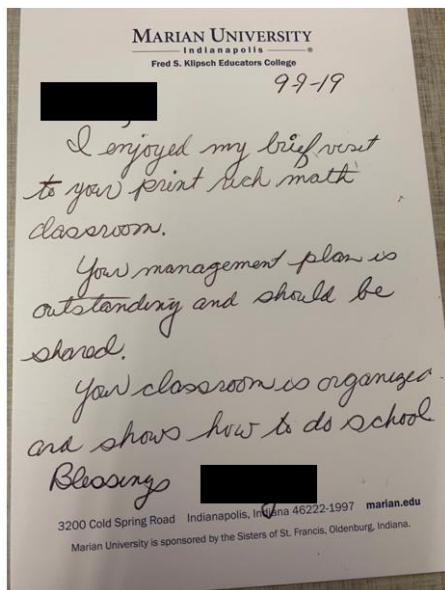 MARIAN UNIVERSITY
Indianapolis ®
Fred S. Klipsch Educators College
9-9-19
I enjoyed my brief visit
to your print rich math
classroom.
Your management plan is
outstanding and should be
shared.
Your classroom is organized
and shows how to do school
Blessings
3200 Cold Spring Road Indianapolis, Indiana 46222-1997 marian.edu
Marian University is sponsored by the Sisters of St. Francis, Oldenburg, Indiana.